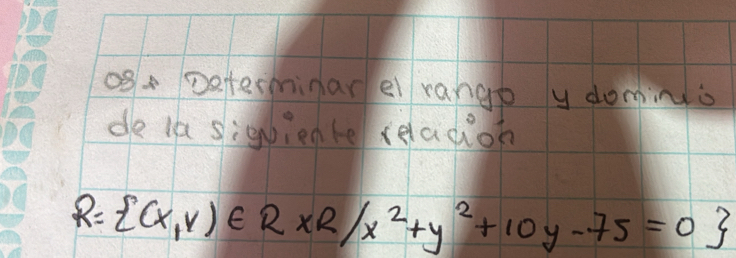 08* Determinar el rango y dominio
de la siguiente relación
R={(x,y) ∈ R x R / x²+y²+10y-75=0}